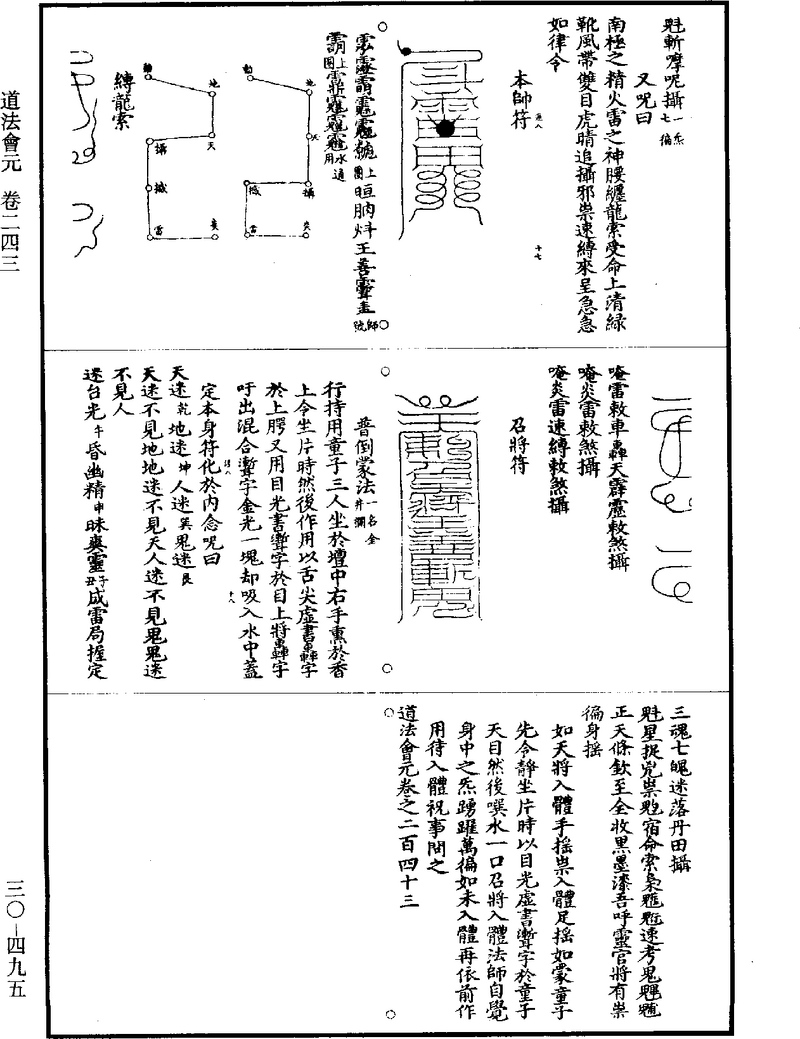 魁斬㗫呢攝一炁七徧
又呪曰
南極之精火雷之神腰纏龍索受命上清緑
靴風帶雙目虎睛追攝邪祟速縛來呈急急
如律令
本師符
十七
王善
師號
縛龍索
地
天
攝
雷
唵雷敕車轟天霹靂敕煞攝
唵炎雷敕煞攝
唵炎雷速縛敕煞攝
召將符
普倒蒙法一名金井闌
行持用童子三人坐於壇中右手熏於香
上令坐片時然後作用以舌尖虛書轟字
於上腭又用目光書字於目上將轟字
吁出混合字金光一塊却吸入水中蓋
十八
定本身符化於內念呪曰
天迷乾地迷坤人迷巽鬼迷艮
天迷不見地地迷不見天人迷不見鬼鬼迷
不見人
迷台光午昏幽精申昧爽靈子丑成雷局握定
三魂七魄迷落丹田攝
星捉祟宿命索梟速考鬼
正天條欽至全收黑墨漆吾呼靈官將有祟
徧身搖
如天將入體手搖祟入體足搖如蒙童子
先令靜坐片時以目光虛書字於童子
天目然後噀水一口召將入體法師自覺
身中之炁踴躍萬徧如未入體再依前作
用待入體祝事問之
道法會元卷之二百四十三
道法會元 卷二四三
三〇－四九五